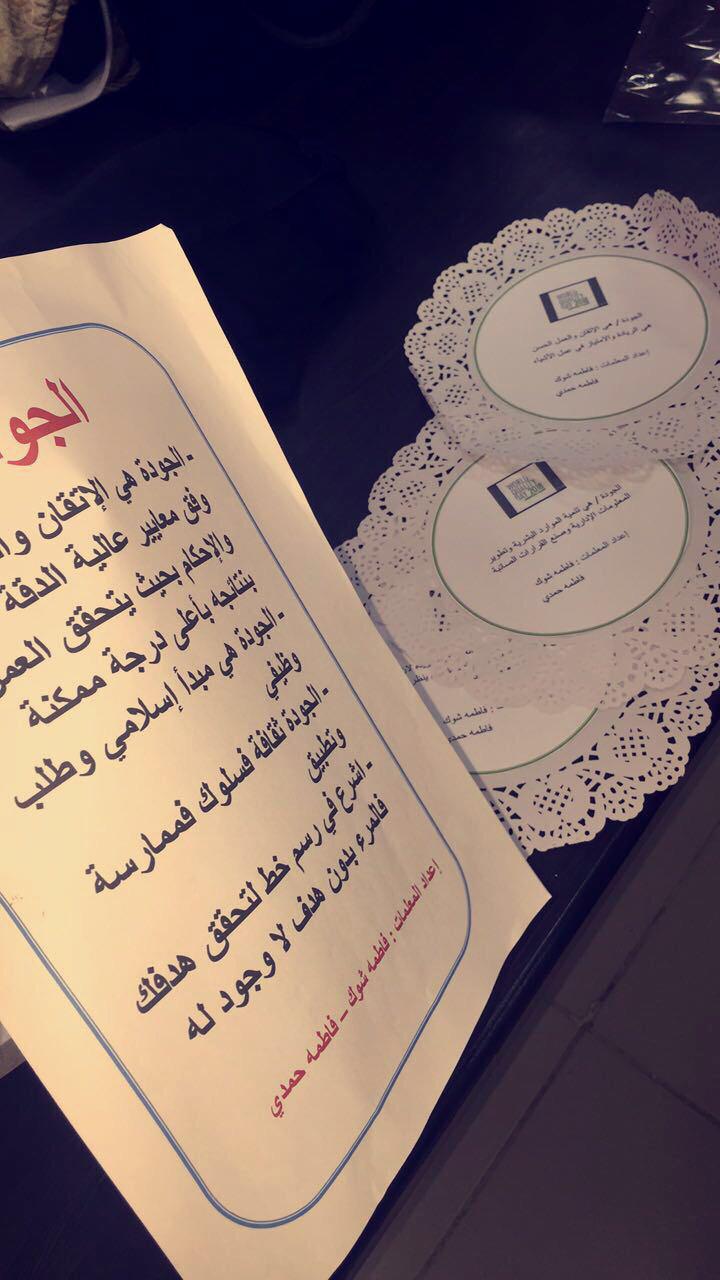 - الجودة هي الإتقان
وفق معايير عالية الدقة
والإحكام بحيث يتحقق
بنتائجه بأعلى درجة ممكنة
- الجودة هي مبدأ إسلامي وطلب
وظيفي
- الجودة ثقافة فسلوك فممارسة
وتطبيق
- اشرع في رسم خط لتحقق هدفك
فالمرء بدون هدف لا وجود له
إعداد المعلمات : فاطمه شوك – فاطمه حمدي
WORLD
QUALITY
الجودة / هي الإتقان والعمل الحسن
هي الريادة والامتياز في عمل الأشياء
إعداد المعلمات : فاطمه شوك
فاطمه حمدي
WORLD
QUALITY
الجودة / هي تنمية الموارد البشرية وتطوير
المعلومات الإدارية وصنع القرارات الصائبة
إعداد المعلمات : فاطمه شوك
فاطمه حمدي
: فاطمه شوك
فاطمه حمدي